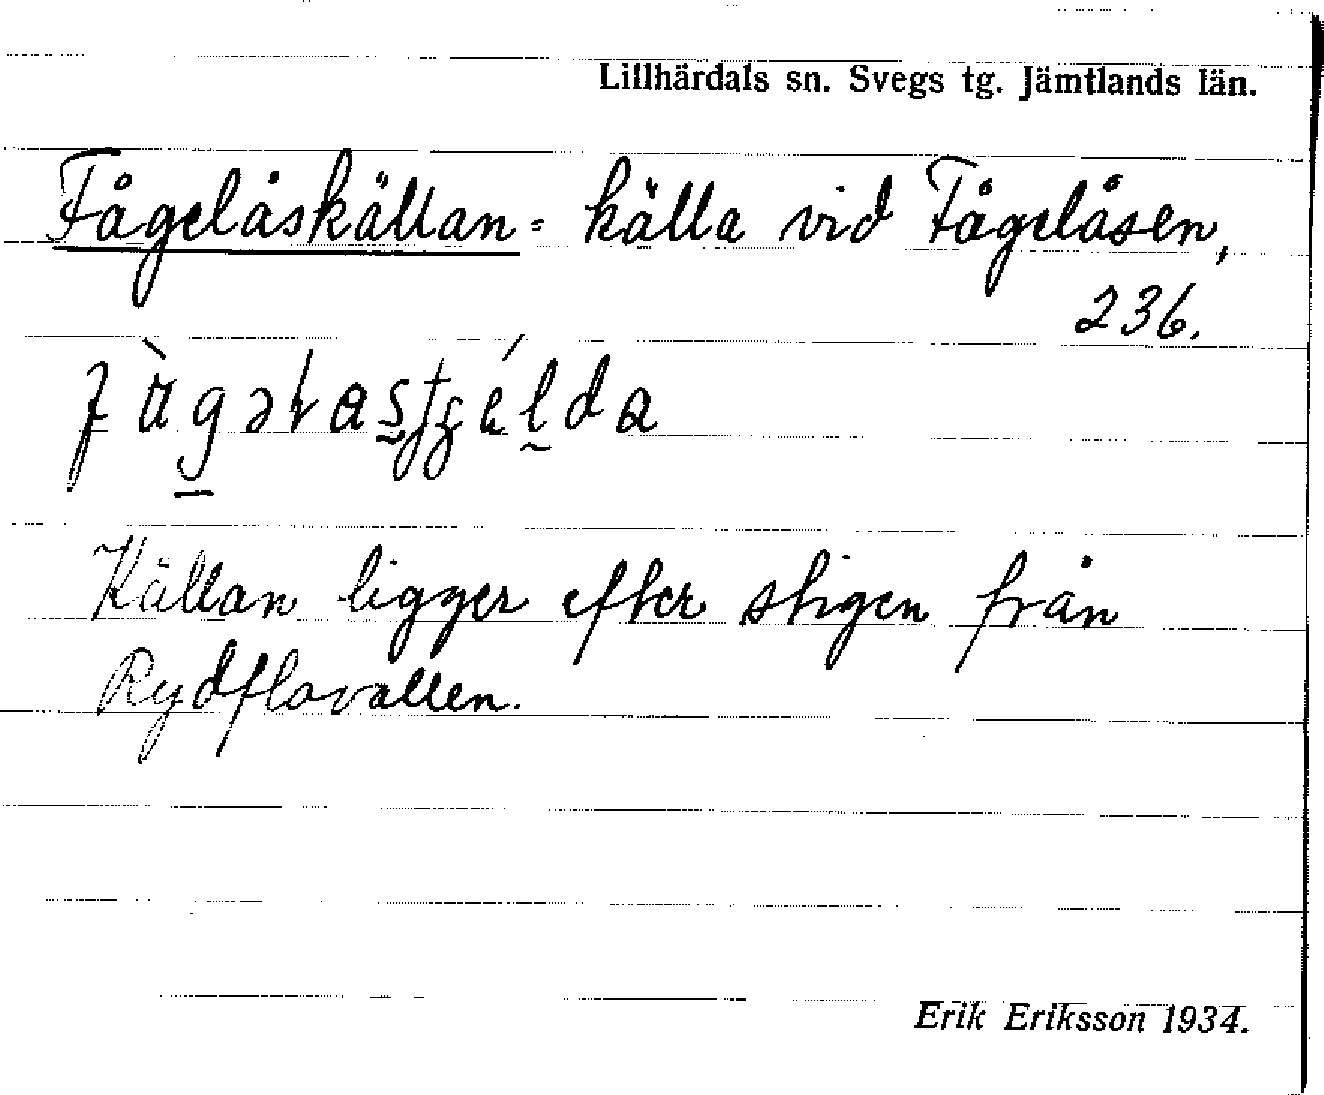 Lillhärdals sn. Svegs tg. Jämtlands län.
Fågelåskällan = källa vid Fågelåsen,
236.
Källan ligger efter stigen från
Rydflovallen.
Erik Eriksson 1934.